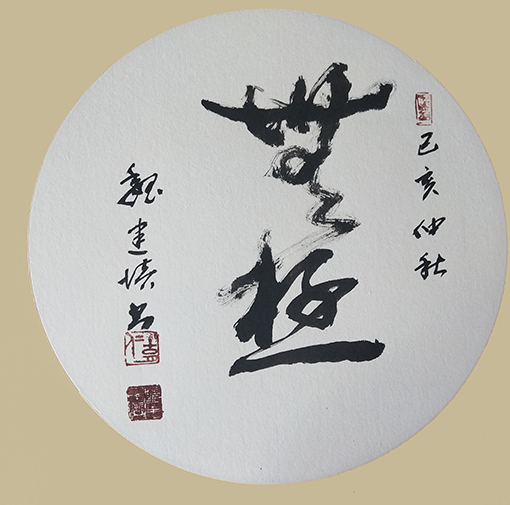 己亥仲秋
無極
魏建书